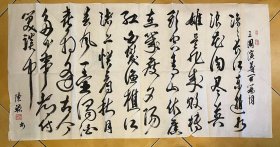 三国演义
滚滚长江东逝
水浪花淘尽英
雄是非成败转
头空青山依旧
在几度夕阳
红白发渔樵江
渚上惯看秋月
春风一壶浊酒
喜相逢古今
多少事都付
笑谈中